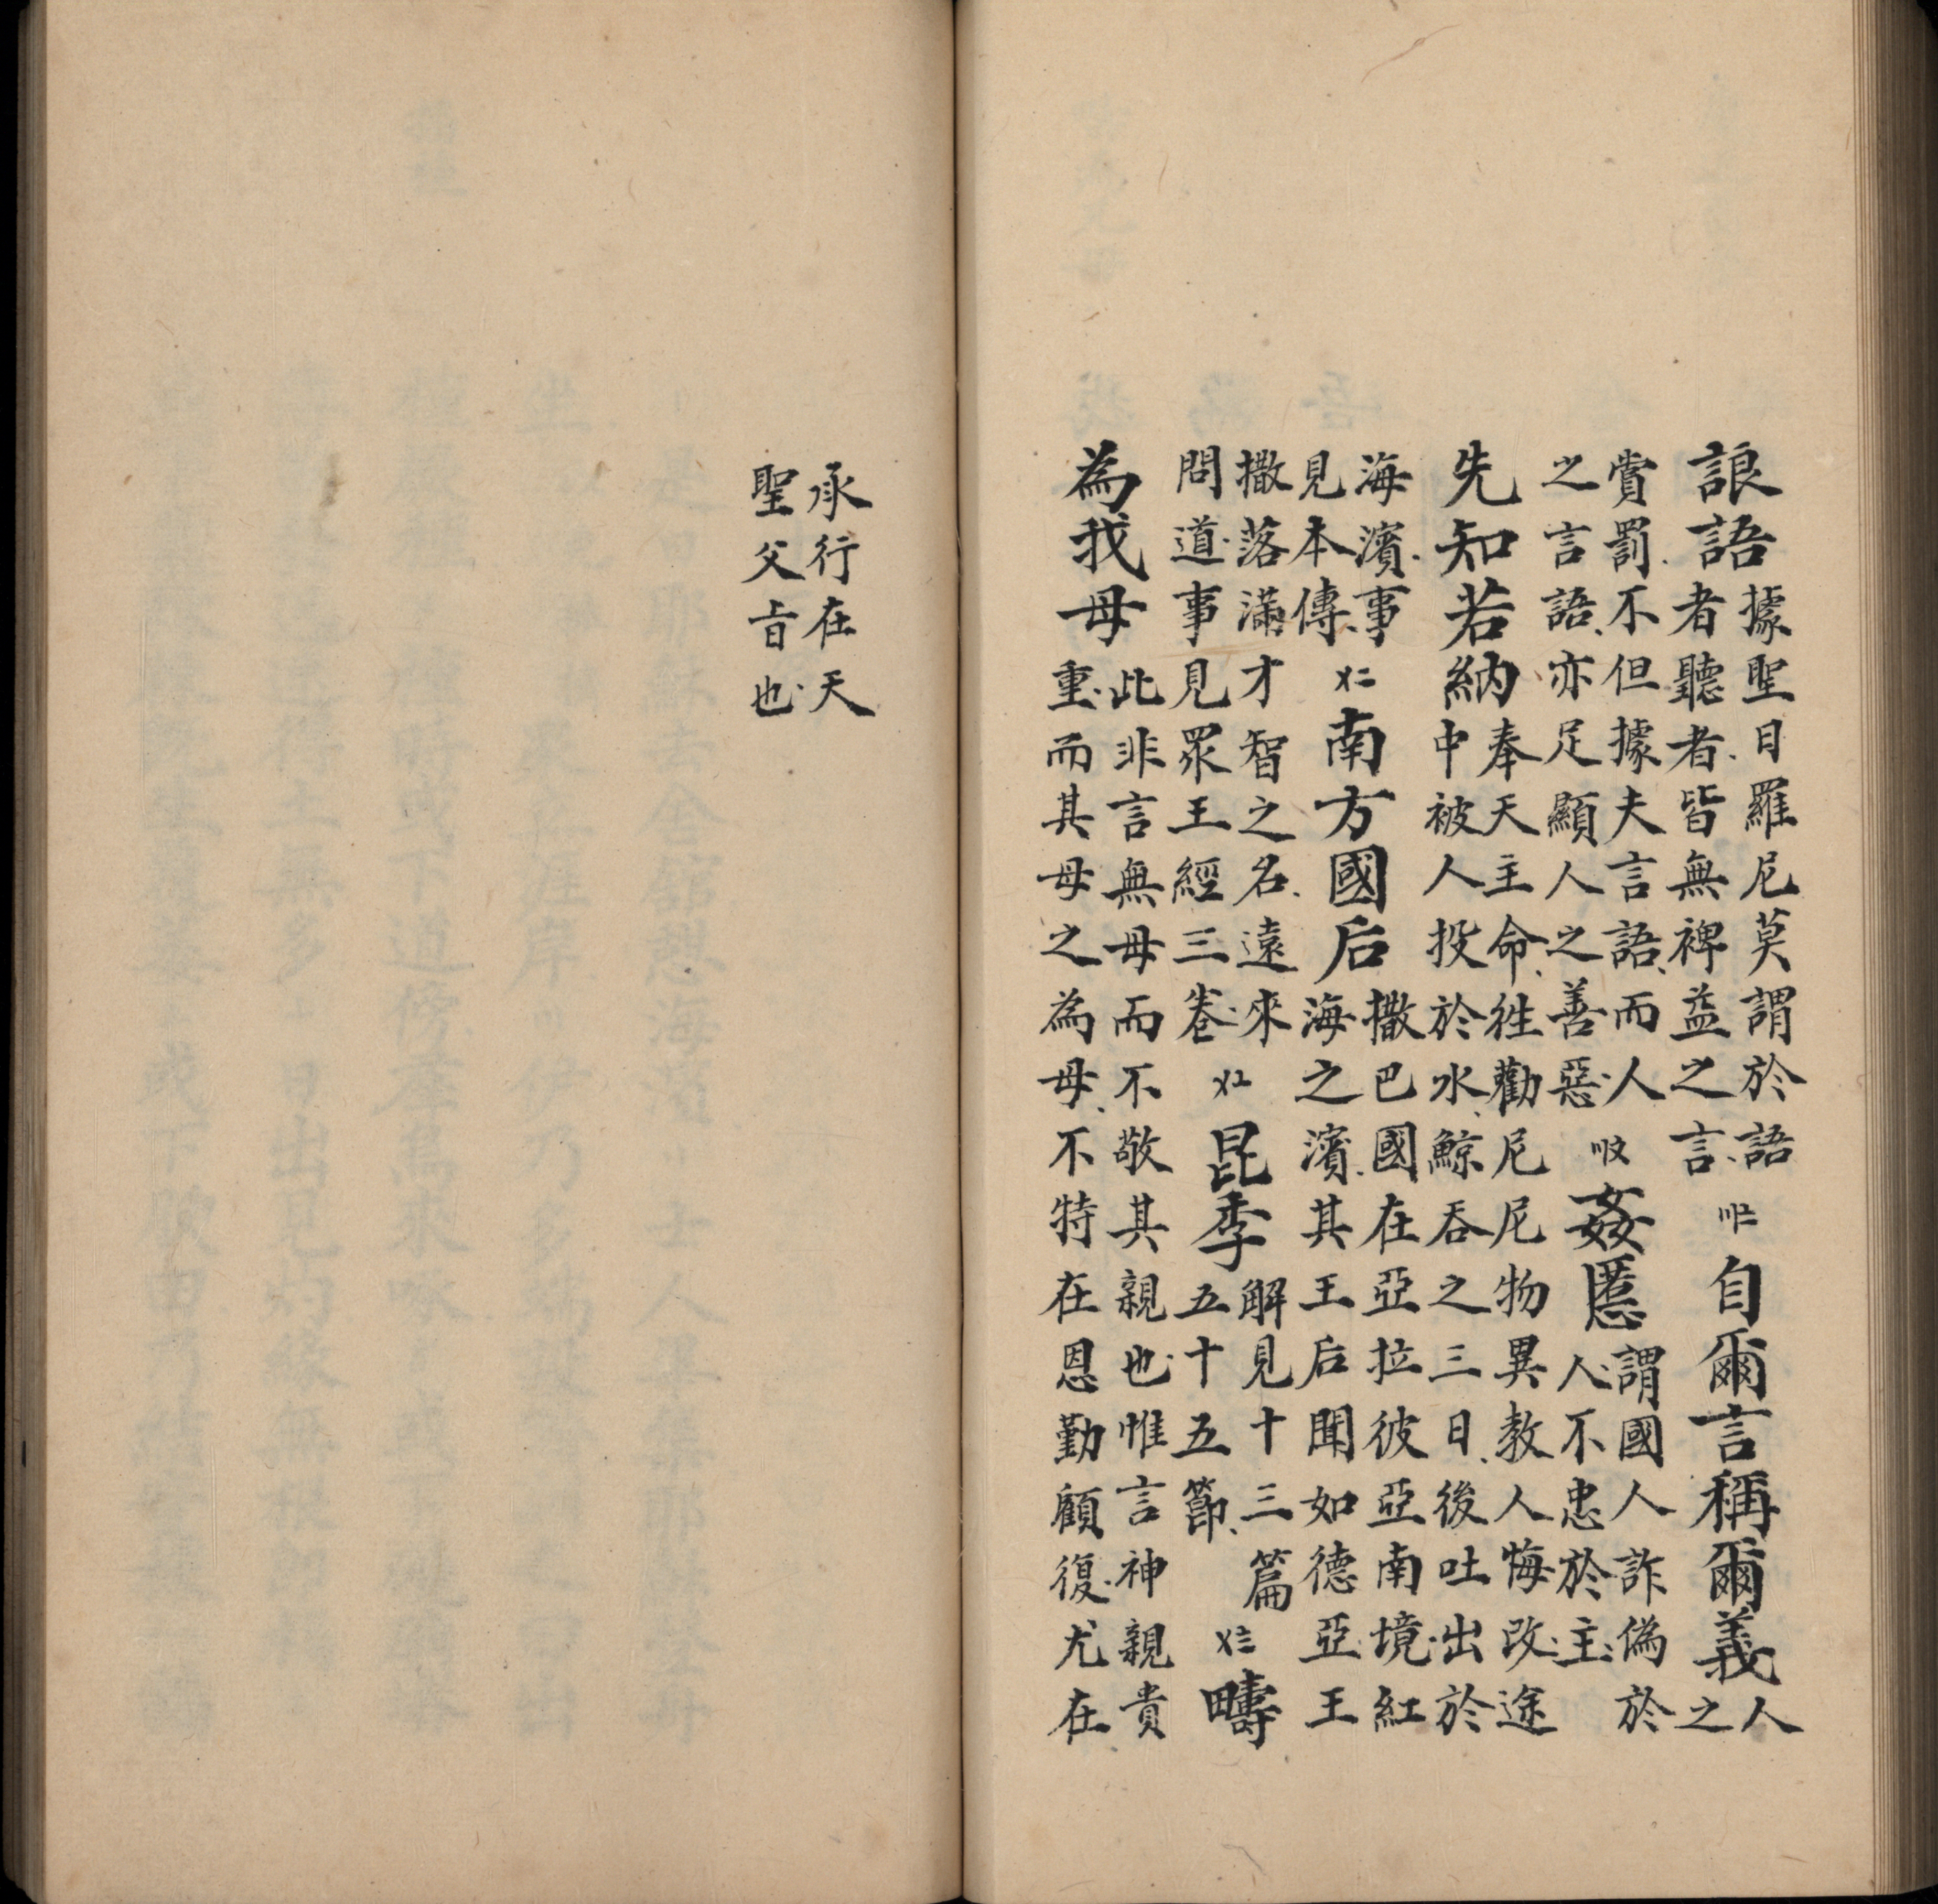 誏語據聖日羅尼莫謂於語
者聽者皆無裨益之言〣〧自爾言稱爾義人
之
賞罰不但據夫言語而人
之言語亦足顯人之善惡〣〩姦慝謂國人詐偽於
人不忠於主
先知若納奉天主命徃勸尼尼物異教人悔改途
中被人投於水鯨吞之三日後吐出於
海濱事
見本傳〤二南方國后撒巴國在亞拉彼亞南境紅
海之濱其王后聞如德亞王
撒落滿才智之名遠來
問道事見眾王經三卷〤〦昆季解見十三篇
五十五節〤〨疇
為我母此非言無母而不敬其親也惟言神親貴
重而其母之為母不特在恩勤顧復尤在
承行在天
聖父旨也